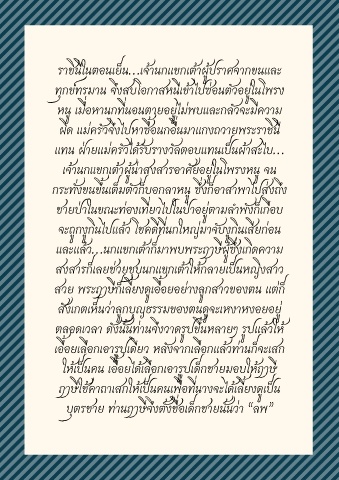 ราชินีในตอนเย็น...เจ้านกแขกเต้าผู้ปราศจากขนและ
ทุกข์ทรมาน จึงสบโอกาสหนีเข้าไปซ่อนตัวอยู่ในโพรง
หนู เมื่อหานกที่นอนตายอยู่ไม่พบและกลัวจะมีความ
ผิด แม่ครัวจึงไปหาซื้อนกอื่นมาแกงถวายพระราชินี
แทน ฝ่ายแม่ครัวได้รับรางวัลตอบแทนเป็นผ้าสะไบ...
เจ้านกแขกเต้าผู้น่าสงสารอาศัยอยู่ในโพรงหนู จน
กระทั่งขนขึ้นเต็มตัวก็บอกลาหนู ซึ่งก็อาสาพาไปส่งถึง
ชายป่าในขณะท่องเที่ยวไปในป่าอยู่ตามลำพังก็เกือบ
จะถูกงูกินไปแล้ว โชคดีที่นกใหญ่มาจับงูกินเสียก่อน
และแล้ว...นกแขกเต้าก็มาพบพระฤๅษีผู้ซึ่งเกิดความ
สงสารก็เลยช่วยชุบนกแขกเต้าให้กลายเป็นหญิงสาว
สวย พระฤๅษีก็เลี้ยงดูเอื้อยอย่างลูกสาวของตน แต่ก็
สังเกตเห็นว่าลูกบุญธรรมของตนดูจะเหงาหงอยอยู่
ตลอดเวลา ดังนั้นท่านจึงวาดรูปขึ้นหลายๆ รูปแล้วให้
เอื้อยเลือกเอารูปเดียว หลังจากเลือกแล้วท่านก็จะเสก
ให้เป็นคน เอื้อยได้เลือกเอารูปเด็กชายมอบให้ฤๅษี
ฤๅษีใช้คาถาเสกให้เป็นคนเพื่อที่นางจะได้เลี้ยงดูเป็น
บุตรชาย ท่านฤๅษีจึงตั้งชื่อเด็กชายนั้นว่า “ลพ”